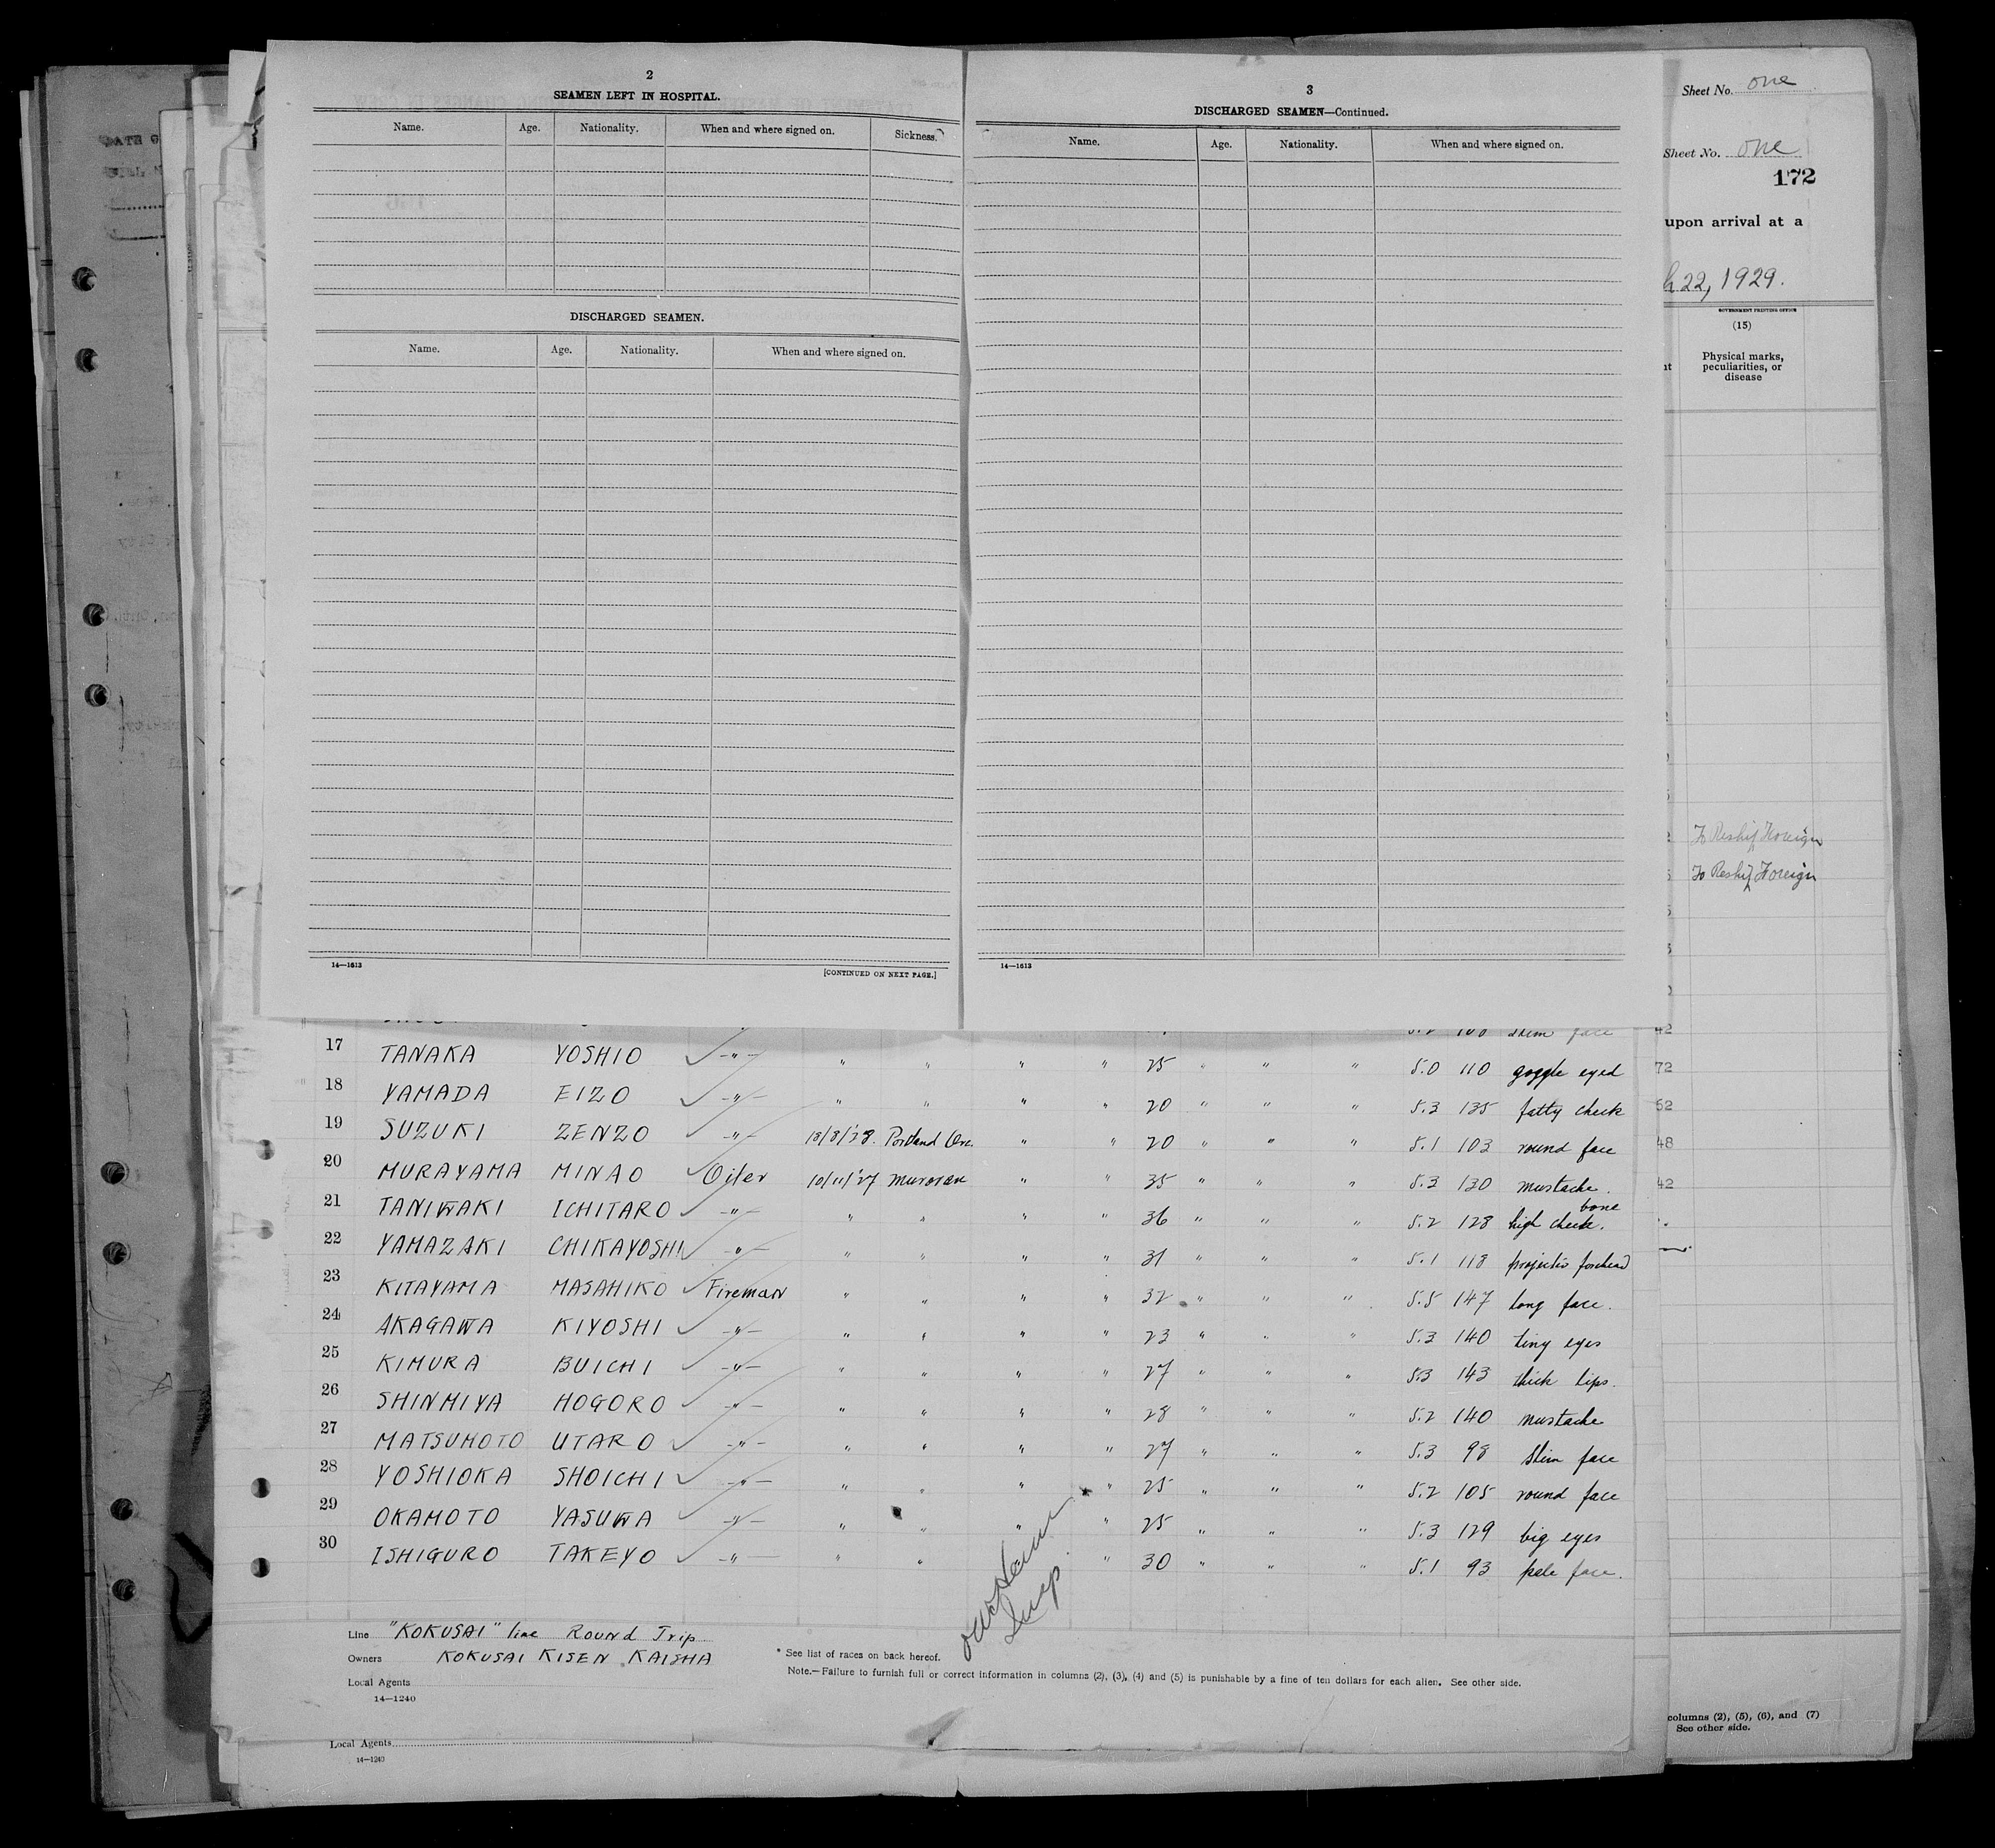 2
SEAMEN LEFT IN HOSPITAL.
Name. Age. Nationality. When and where signed on. Sickness.
DISCHARGED SEAMEN.
Name. Age. Nationality. When and where signed on.
14—1613
[CONTINUED ON NEXT PAGE.]
3
DISCHARGED SEAMEN—Continued.
Name. Age. Nationality. When and where signed on.
14—1613
Sheet No. one
Sheet No. one
172
upon arrival at a
22, 1929.
GOVERNMENT PRINTING OFFICE
(15)
Physical marks,
peculiarities, or
disease
To Reship Foreign
To Reship Foreign
face 42
17 TANAKA YOSHIO ✓ -"- " " " " 25 " " " 5.0 110 goggle eyed 72
18 YAMADA EIZO ✓ -"- " " " " 20 " " " 5.3 135 fatty cheek 52
19 SUZUKI ZENZO ✓ -"- 18/8/'28. Portland Ore. " " 20 " " " 5.1 103 round face 48
20 MURAYAMA MINAO ✓ Oiler 10/11/'27 Muroran " " 35 " " " 5.3 130 mustache. 42
21 TANIWAKI ICHITARO ✓ -"- " " " " 36 " " " 5.2 128 high cheek bone.
22 YAMAZAKI CHIKAYOSHI ✓ -"- " " " " 31 " " " 5.1 118 forehead
23 KITAYAMA MASAHIKO ✓ Fireman " " " " 32 " " " 5.5 147 long face.
24 AKAGAWA KIYOSHI ✓ -"- " " " " 23 " " " 5.3 140 tiny eyes
25 KIMURA BUICHI ✓ -"- " " " " 27 " " " 5.3 143 thick lips.
26 SHINMIYA HOGORO ✓ -"- " " " " 28 " " " 5.2 140 mustache
27 MATSUMOTO UTARO ✓ -"- " " " " 27 " " " 5.3 98 slim face
28 YOSHIOKA SHOICHI ✓ -"- " " " " 25 " " " 5.2 105 round face
29 OKAMOTO YASUWA -"- " " " " 25 " " " 5.3 129 big eyes
30 ISHIGURO TAKEYO ✓ -"- " " " 30 " " " 5.1 93 pale face.
Insp.
Line "KOKUSAI" line ROUND Trip
Owners KOKUSAI KISEN KAISHA
Local Agents
14—1240
* See list of races on back hereof.
Note.—Failure to furnish full or correct information in columns (2), (3), (4) and (5) is punishable by a fine of ten dollars for each alien. See other side.
Local Agents
14—1240
columns (2), (5), (6), and (7)
See other side.